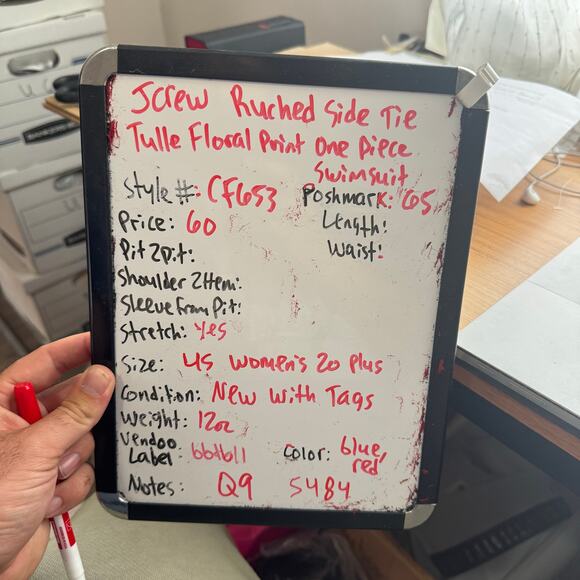 JCrew Ruched Side Tie
Tulle Floral Print One Piece
Swimsuit
Style #: CF653 Poshmark: 65
Price: 60 Length:
Pit 2 Pit: Waist:
Shoulder 2 Hem:
Sleeve From Pit:
Stretch: Yes
Size: US Women's 20 Plus
Condition: New With Tags
Weight: 12oz
Vendoo
Label: bbtb11 Color: blue,
red
Notes: Q9 5484